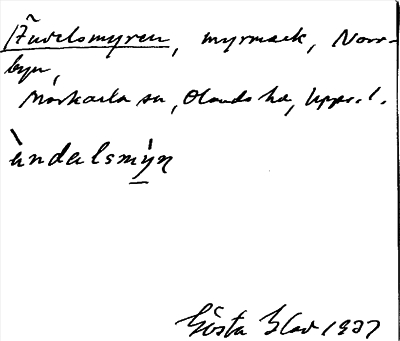 Ändelsmyren, myrmark, Norr-
byn,
Morkarla sn, Olands hd, Uppl.
àndalsmỳn
Gösta Blad 1937